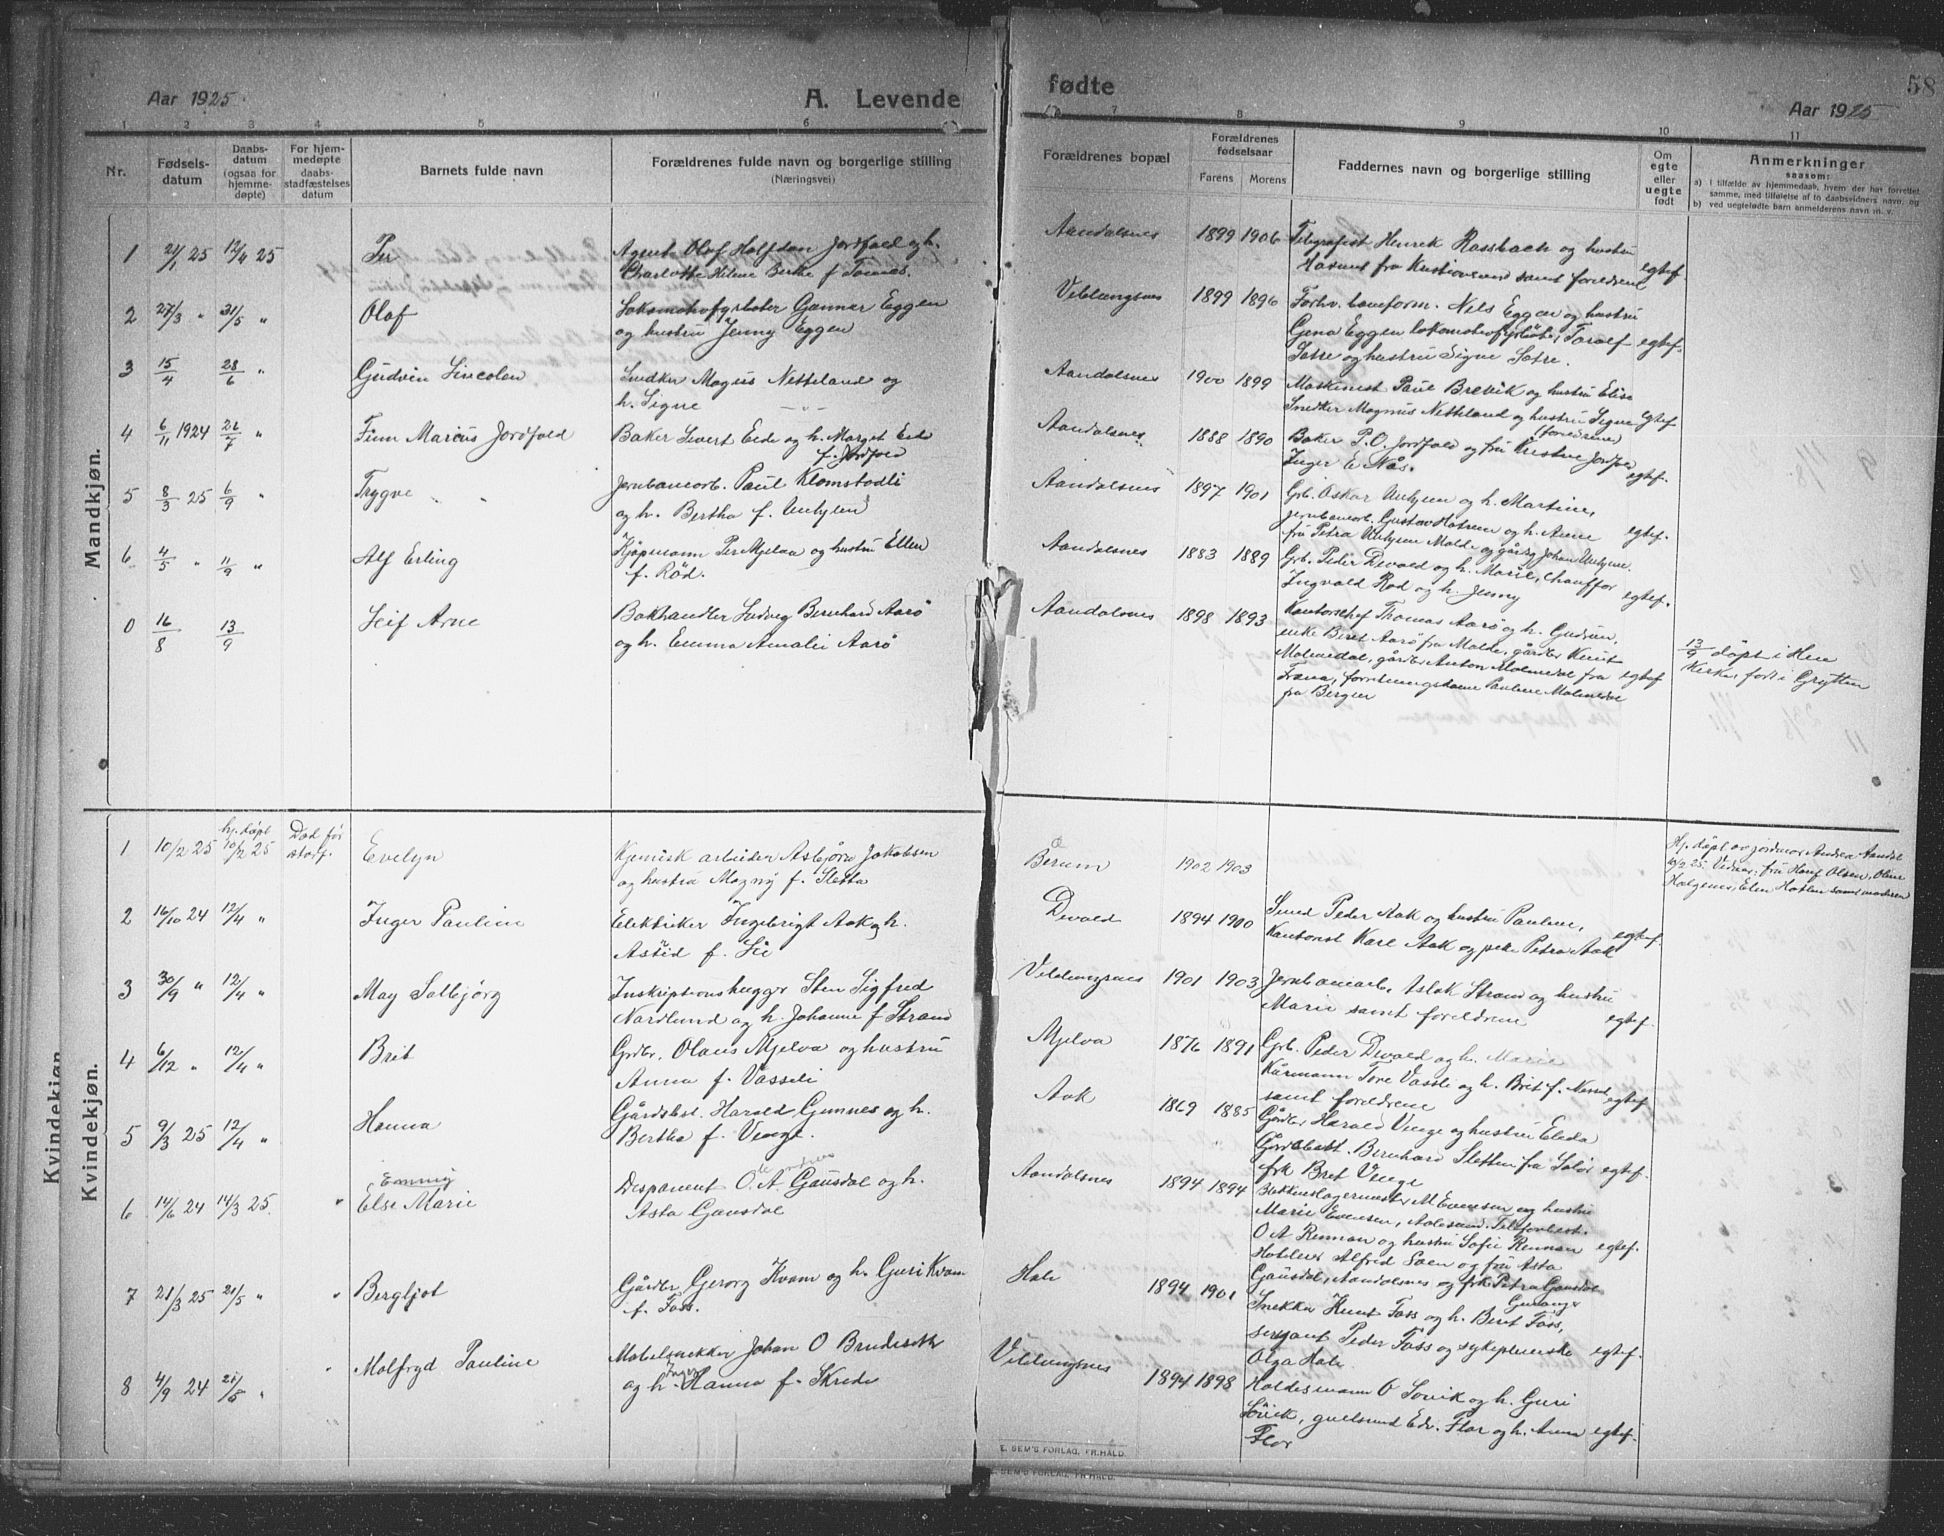 Aar 1925.
A. Levende
1 2 3 4 5 6
Nr.
Fødsels-
datum
Daabs-
datum
(ogsaa for
hjemme-
døpte)
For hjem-
medøpte
daabs-
stadfæstelses
datum
Barnets fulde navn
Forældrenes fulde navn og borgerlige stilling
(Næringsvei)
Mandkjøn.
1 21/1 25 12/4 25 Per Agent Olaf Halfdan Jordfald og h.
Charlotte Helene Berthe f Tomas.
2 27/3 " 31/5 " Olaf Lokomotivfyrbøter Gunnar Eggen
og hustru Jenny Eggen
3 15/4 28/6 " Gudvin Lincolen Snedker Magus Netteland og
h. Signe — " —
4 6/11 1924 26/7 " Finn Marius Jordfald Baker Sivert Eide og h. Marget Eide
f. Jordfald
5 8/3 25 6/9 " Trygve Jernbanearb. Paul Klomstadli
og h. Bertha f. Unhjem
6 4/5 " 11/9 " Alf Erling Kjøpmann Per Mjelva og hustru Ellen
f. Rød.
0 16/8 13/9 Leif Arne Bokhandler Ludvig Bernhard Aarø
og h. Emma Amalie Aarø
Kvindekjøn
Kvindekjøn.
1 10/2 25 hj. døpt 10/2 25 Død før stadf. Evelyn Kjemisk arbeider Asbjørn Jakobsen
og hustru Magny f. Sletta
2 16/10 24 12/4 " Inger Pauline Elektriker Ingebrigt Aak og h.
Astrid f. Lie
3 30/9 " 12/4 " May Solbjørg Inskriptionshugger Sten Sigfred
Nordlund og h. Johanne f Strand
4 6/12 " 12/4 " Brit Grbr. Olaus Mjelva og hustru
Anna f. Vasseli
5 9/3 25 12/4 " Hanna Gårdsbst. Harald Gumnes og h.
Bertha f. Venge.
6 14/6 24 14/3 25. " Emmy
Else Marie Disponent O. A. Gausdal og h.
Asta Gausdal
7 21/3 25 21/5 " " Bergljot Gårdbr. Georg Kvam og h. Guri Kvam
f. Foss.
8 4/9 24 21/5 " Malfryd Pauline Møbelsnekker Johan O Brudeseth
og h. Inga Hanna f. Skrede
fødte
58
Aar 1925
7 8 9 10 11
Forældrenes bopæl
Forældrenes
fødselsaar
Farens Morens
Faddernes navn og borgerlige stilling
Om
egte
eller
uegte
født
Anmerkninger
saasom:
a) i tilfælde av hjemmedaab, hvem der har forrettet
samme, med tilføielse af to daabsvidners navn, og
b) ved uegtefødte barn anmelderens navn m. v.
Aandalsnes 1899 1906 Telegrafist Henrik Rossbach og hustru
Rasmus fra Kristiansund samt foreldrene egtef
Veblungsnes 1899 1896 Forhv. baneform. Nils Eggen og hustru
Gena Eggen lokomotivfyrbøter Toralf egtef.
Sotre og hustru Signe Sotre.
Aandalsnes 1900 1899 Maskinist Paul Brevik og hustru Elise
Snedker Magnus Netteland og hustru Signe egtef
(foreldrene)
Aandalsnes 1888 1890 Baker P. O. Jordfald og fru Kristine Jordfald
Inger E Nås. egtef.
Aandalsnes 1897 1901 Grb. Oskar Unhjem og h. Martine,
jernbanearb. Gustav Hatrem og h. Anne egtef.
frk Petra Unhjem Molde og gårdg Johan Unhjem.
Aandalsnes 1883 1889 Grb. Peder Devold og h. Marie, chauffør
Ingvald Rød og h. Jenny egtef.
Aandalsnes 1898 1893 Kontorchef Thomas Aarø og h. Gudrun,
enke Beret Aarø fra Molde, gårdbr Knut
Malmedal, gårdbr Anton Malmedal fra egtef
Fræna, forretningsdame Pauline Malmedal
fra Bergen
13/9 døpt i Hen
Kirke, født i Grytten
Berum 1902 1903
Hj. døpt av jordmor Andrea Aandal
10/2 25. Vidner: fru Olsen, Oline
Halgenes, Elen Hatlen samt moderen
Devold 1894 1900 Smed Peder Aak og hustru Pauline,
Kontorist Karl Aak og pike Petra Aak egtef.
Veblungsnes 1901 1903 Jernbanearb. Aslak Strand og hustru
Marie samt foreldrene egtef.
Mjelva 1876 1891 Grb. Peder Devold og h. Marie
Kårmann Tore Vassli og h. Brit f. Nesset egtef
samt foreldrene
Aak 1869 1885 Gårdbr. Harald Venge og hustru Eleda
Gårdsbest. Bernhard Sletten fra Solør egtef.
frk Bret Venge
Aandalsnes 1894 1894 Blikkenslagermester M Evensen og hustru
Marie Evensen, Aalesund. Telefonbest.
O A Rennan og hustru Sofie Rennan egtef.
Hoteleier Alfred Soen og frk Asta
Gausdal, Aandalsnes og frk Petra Gausdal
Geiranger
Hole 1894 1901 Snekker Knut Foss og h. Beret Foss,
sersjant Peder Foss og sykepleierske egtef.
Olga Hole
Veblungsnes 1894 1898 Handelsmann O Sovik og h. Guri
Sövik, gullsmed Edv. Flor og h. Anna egtef.
Flor
E. SEM'S FORLAG, FR.HALD.
E. SEM'S FORLAG, FR.HALD.